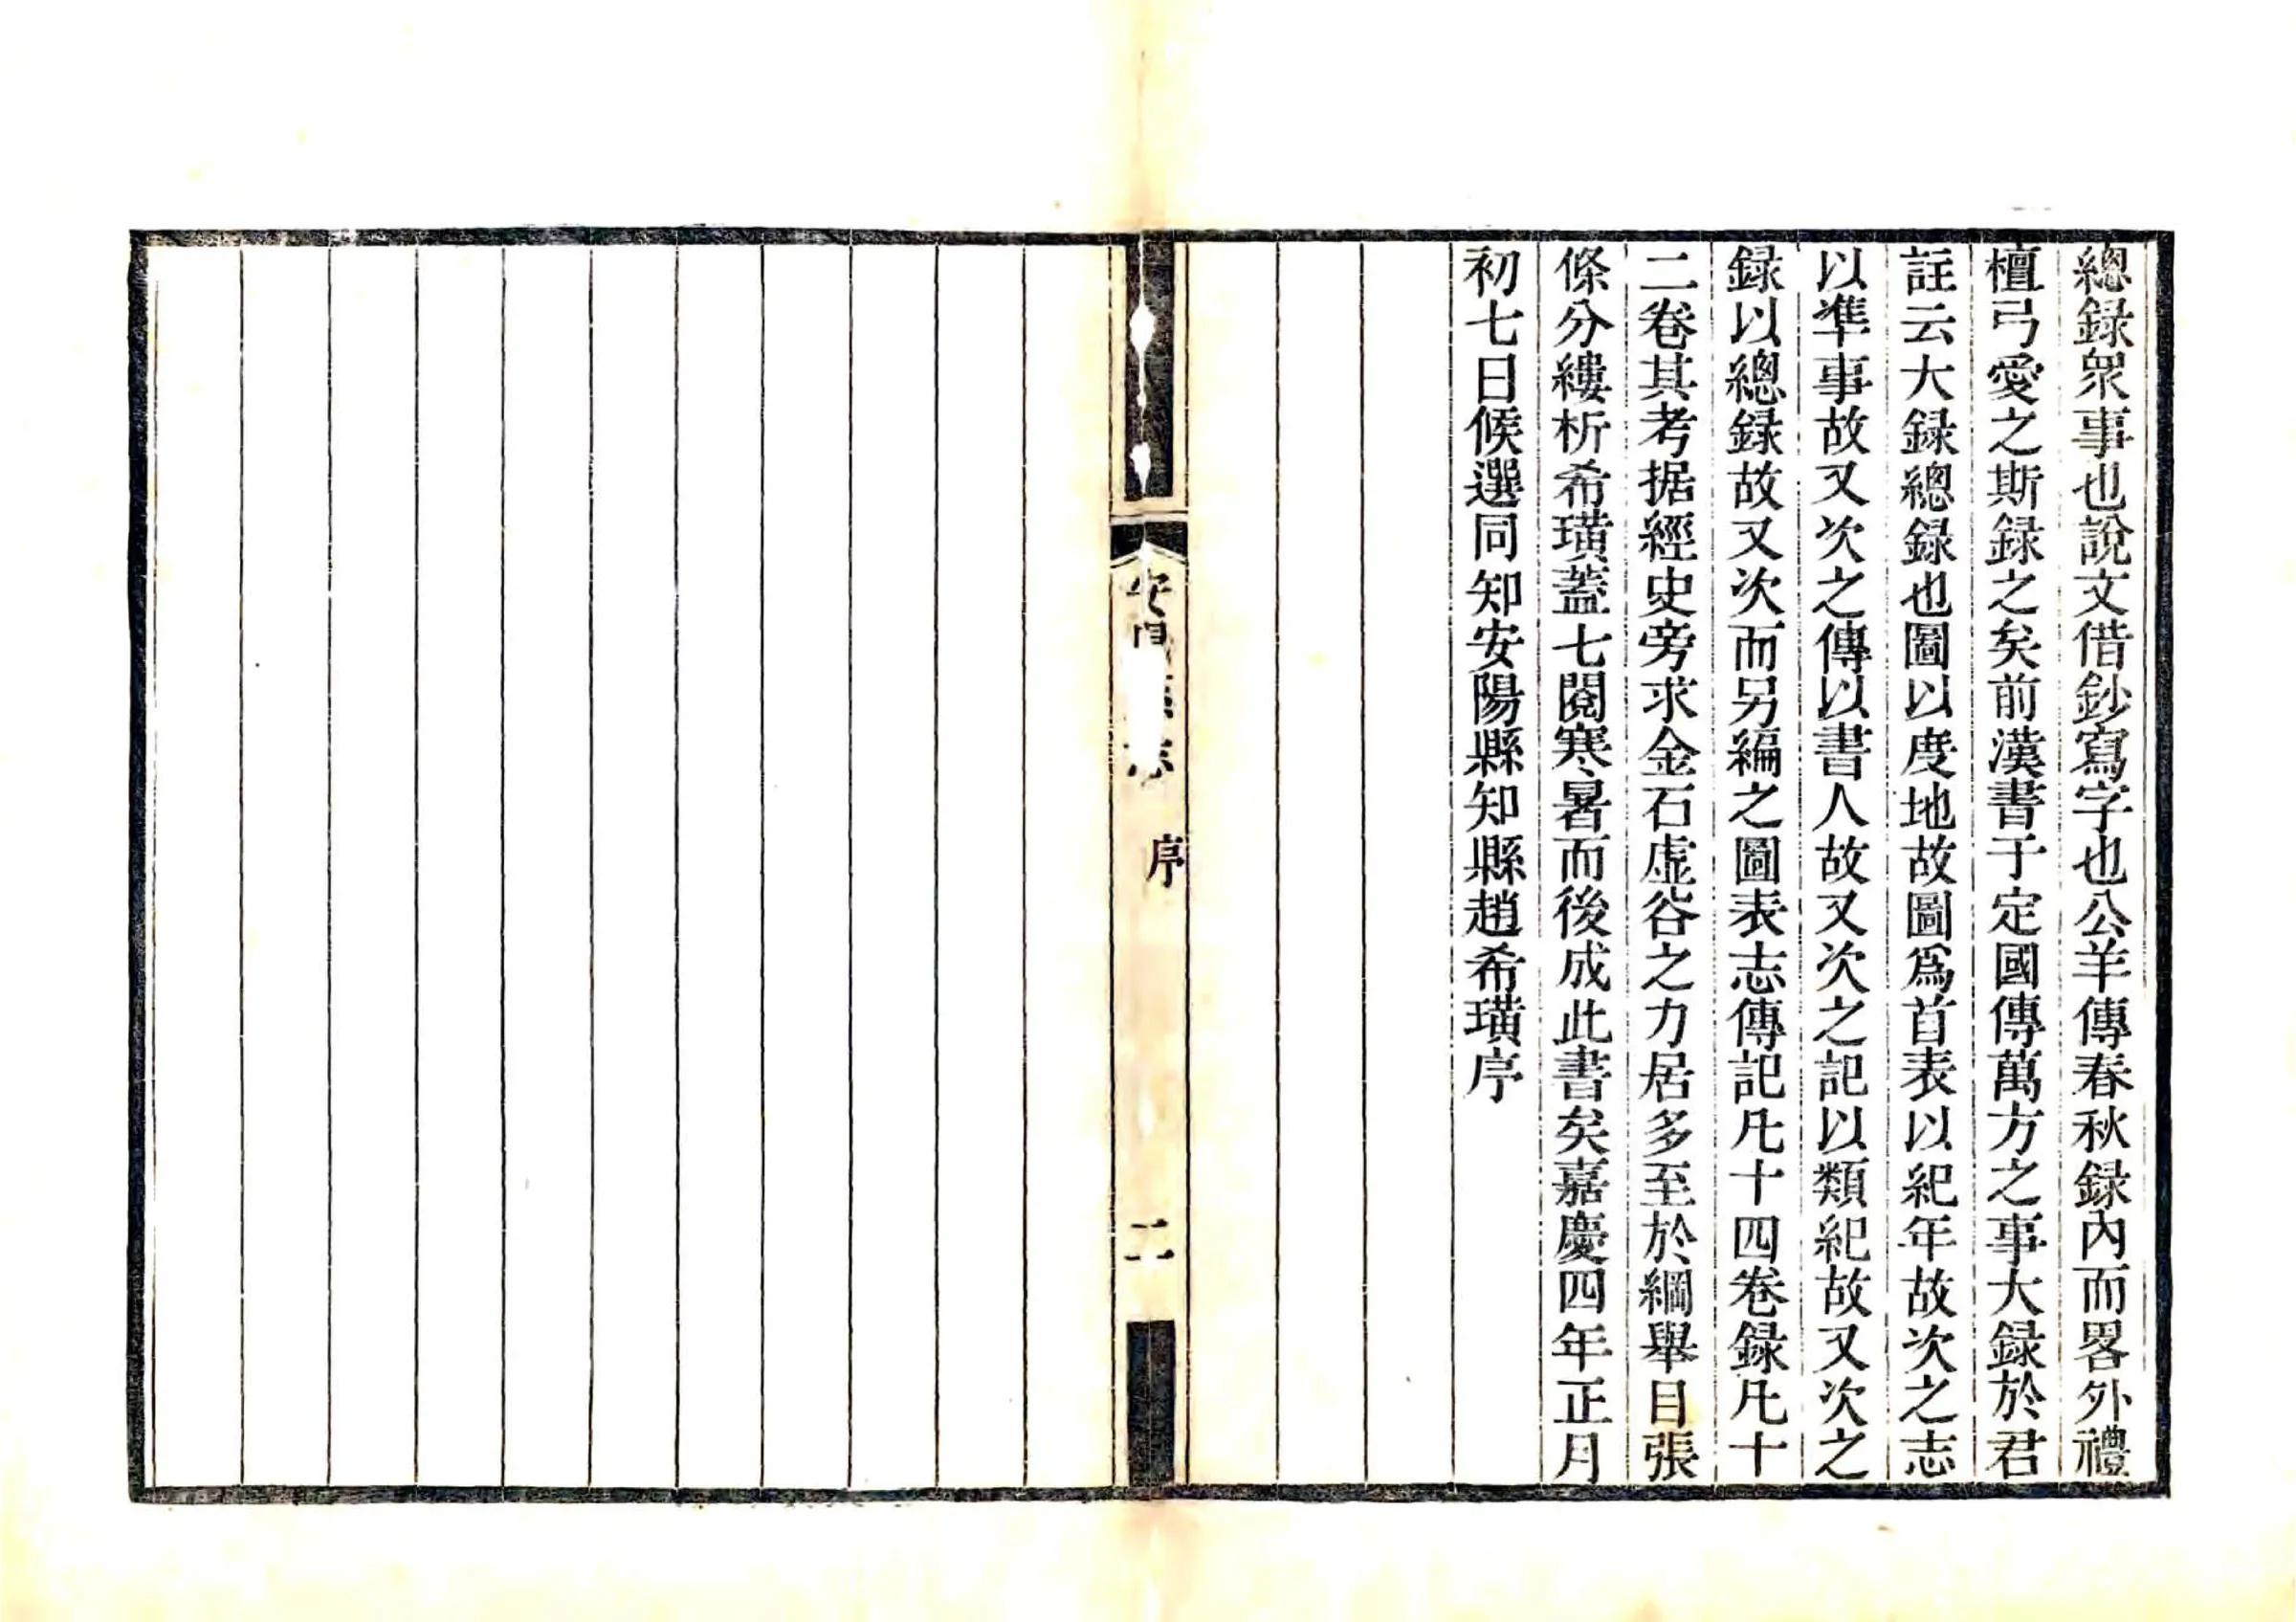 總録衆事也說文借鈔寫字也公羊傳春秋録內而畧外禮
檀弓愛之斯録之矣前漢書于定國傳萬方之事大録於君
註云大録總録也圖以度地故圖爲首表以紀年故次之志
以準事故又次之傳以書人故又次之記以類紀故又次之
録以總録故又次而另編之圖表志傳記凡十四卷録凡十
二卷其考据經史旁求金石虛谷之力居多至於綱舉目張
條分縷析希璜蓋七閱寒暑而後成此書矣嘉慶四年正月
初七日候選同知安陽縣知縣趙希璜序
安 志 序 二